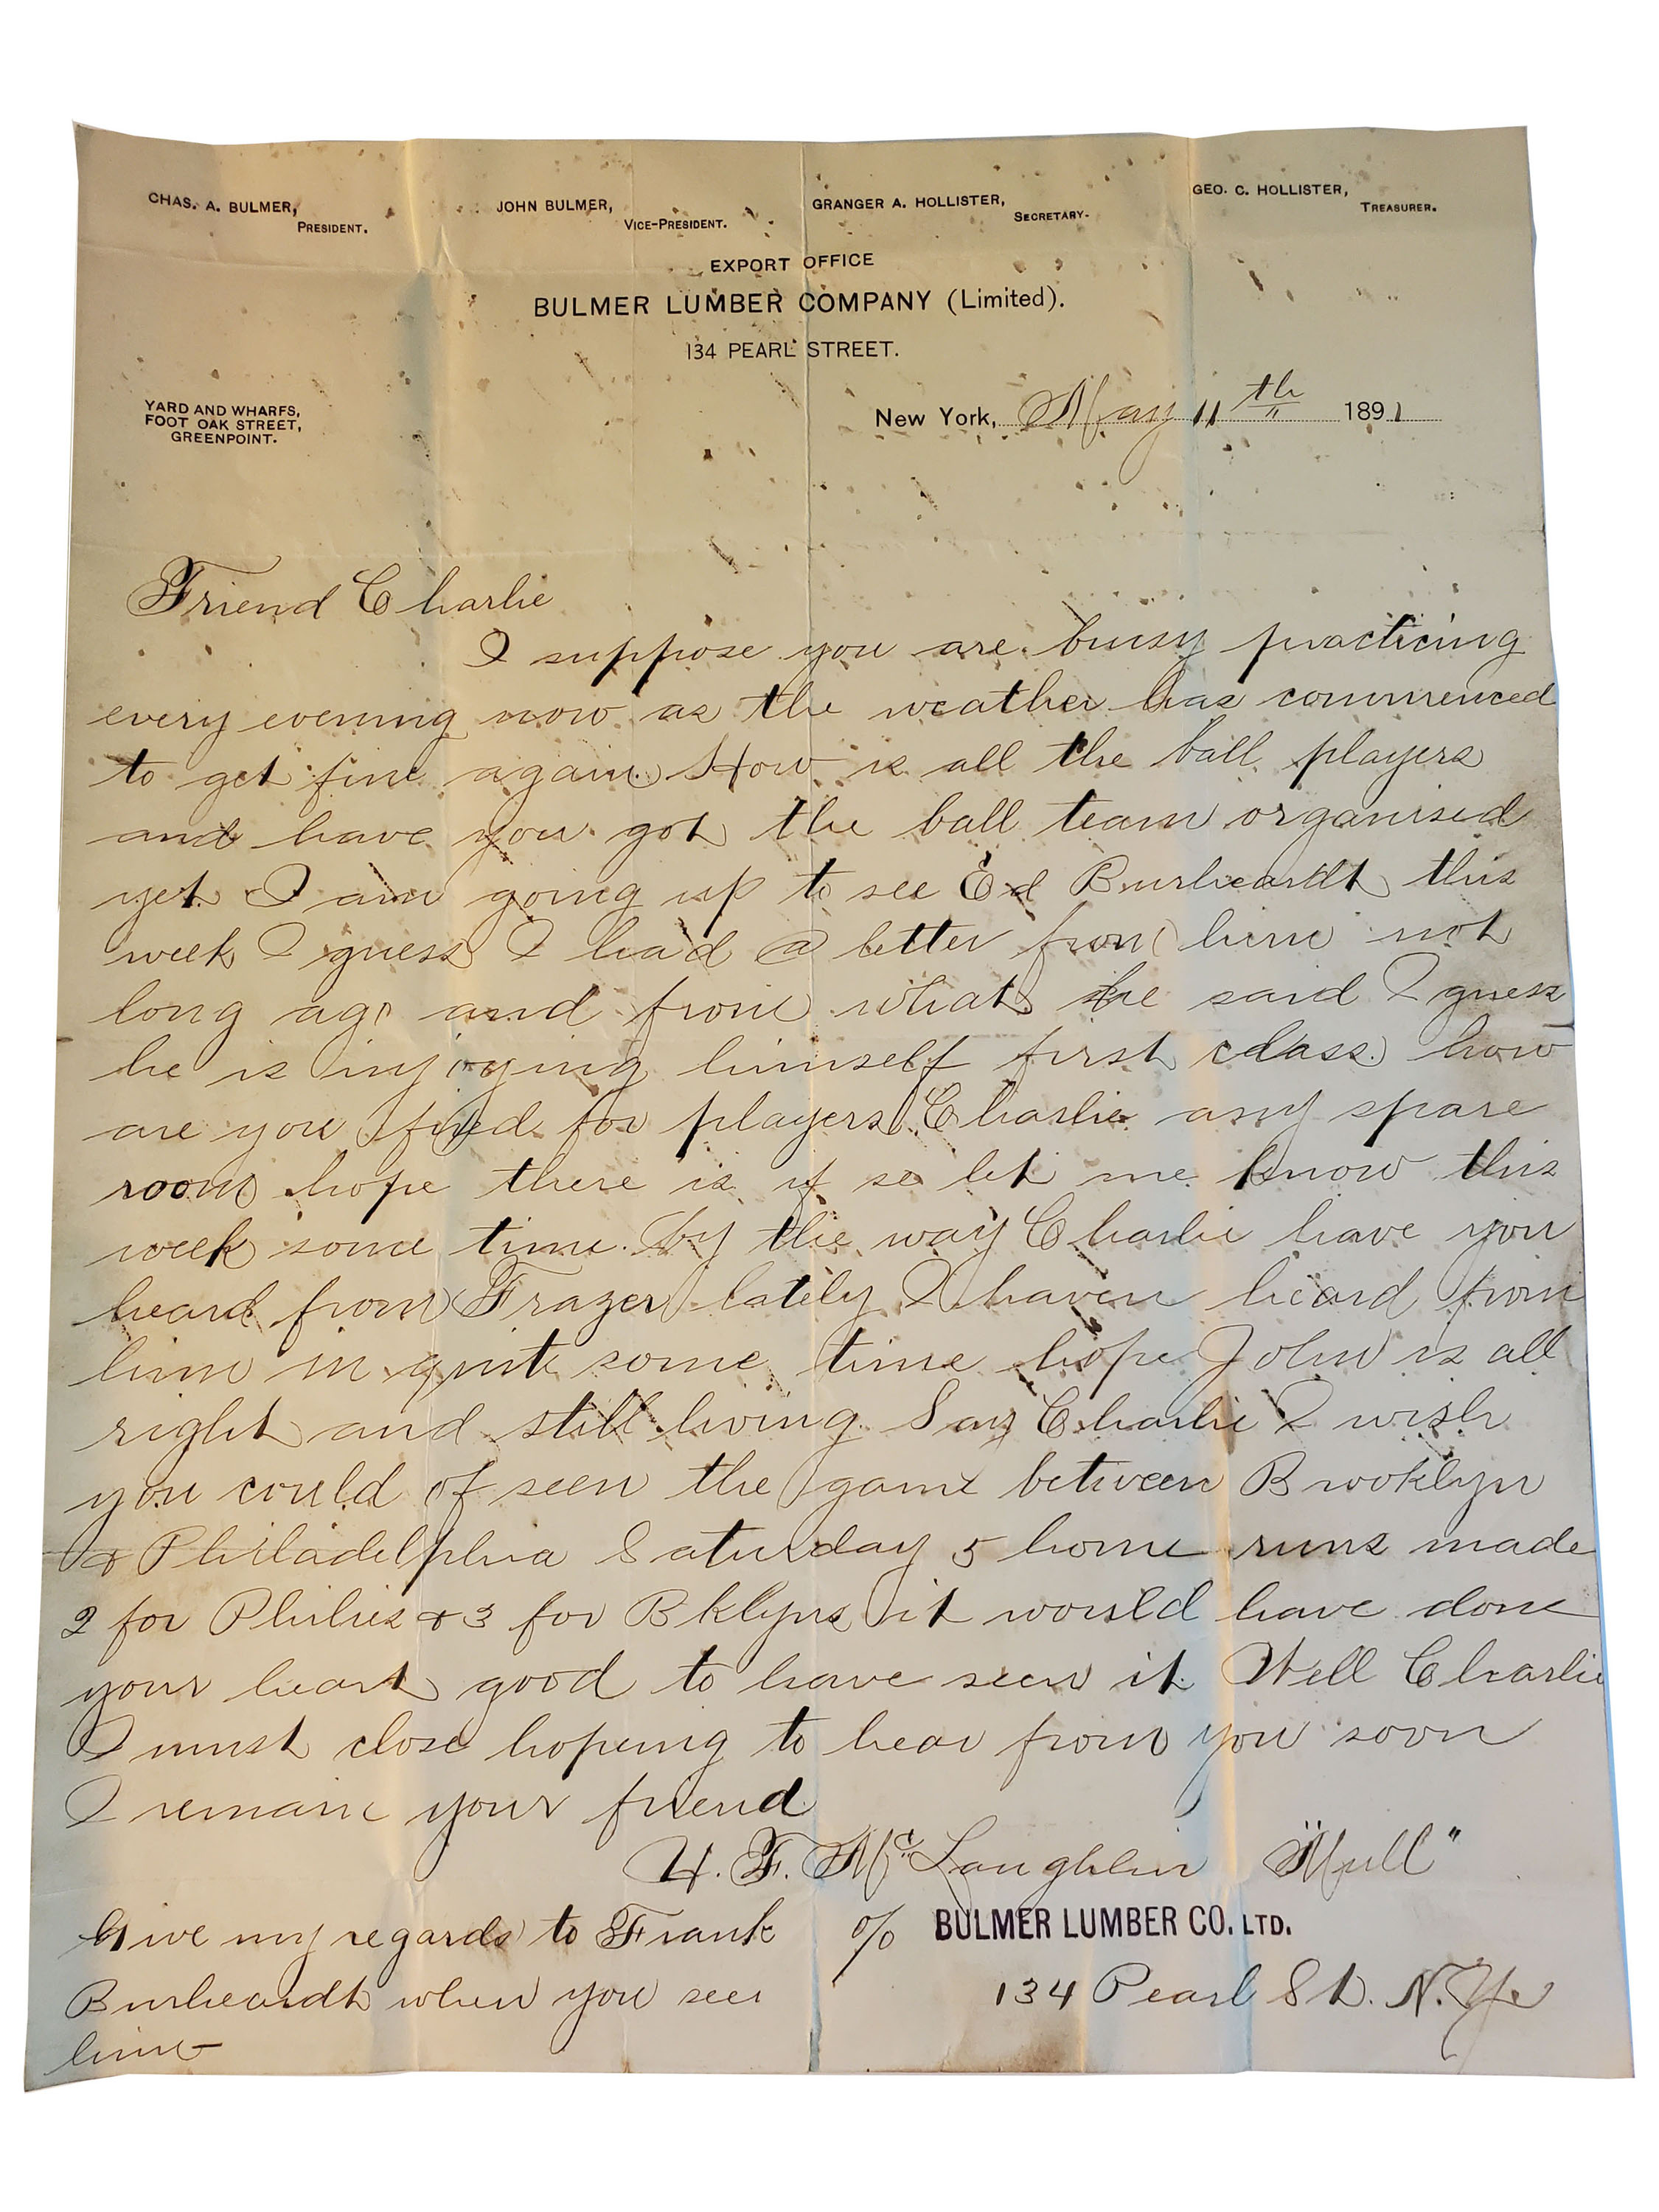 CHAS. A. BULMER, PRESIDENT. JOHN BULMER, VICE-PRESIDENT. GRANGER A. HOLLISTER, SECRETARY. GEO. C. HOLLISTER, TREASURER.
EXPORT OFFICE
BULMER LUMBER COMPANY (Limited).
134 PEARL STREET.
YARD AND WHARFS,
FOOT OAK STREET,
GREENPOINT.
New York, May 11th 1891
Friend Charlie
I suppose you are busy practicing
every evening now as the weather has commenced
to get fine again. How is all the ball players
and have you got the ball team organised
yet. I am going up to see Ed Burheardt this
week I guess I had a letter from him not
long ago and from what he said I guess
he is injoying himself first class. how
are you fixed for players Charlie any spare
room hope there is if so let me know this
week some time. by the way Charlie have you
heard from Frazer lately I haven heard from
him in quite some time hope John is all
right and still living. Say Charlie I wish
you could of seen the game between Brooklyn
& Philadelphia Saturday 5 home runs made
2 for Philies & 3 for Bklyns it would have done
your heart good to have seen it. Well Charlie
I must close hopeing to hear from you soon
I remain your friend
H. F. McLaughlin "Mull"
Give my regards to Frank
Burheardt when you see
him
c/o BULMER LUMBER CO. LTD.
134 Pearl St. N.Y.